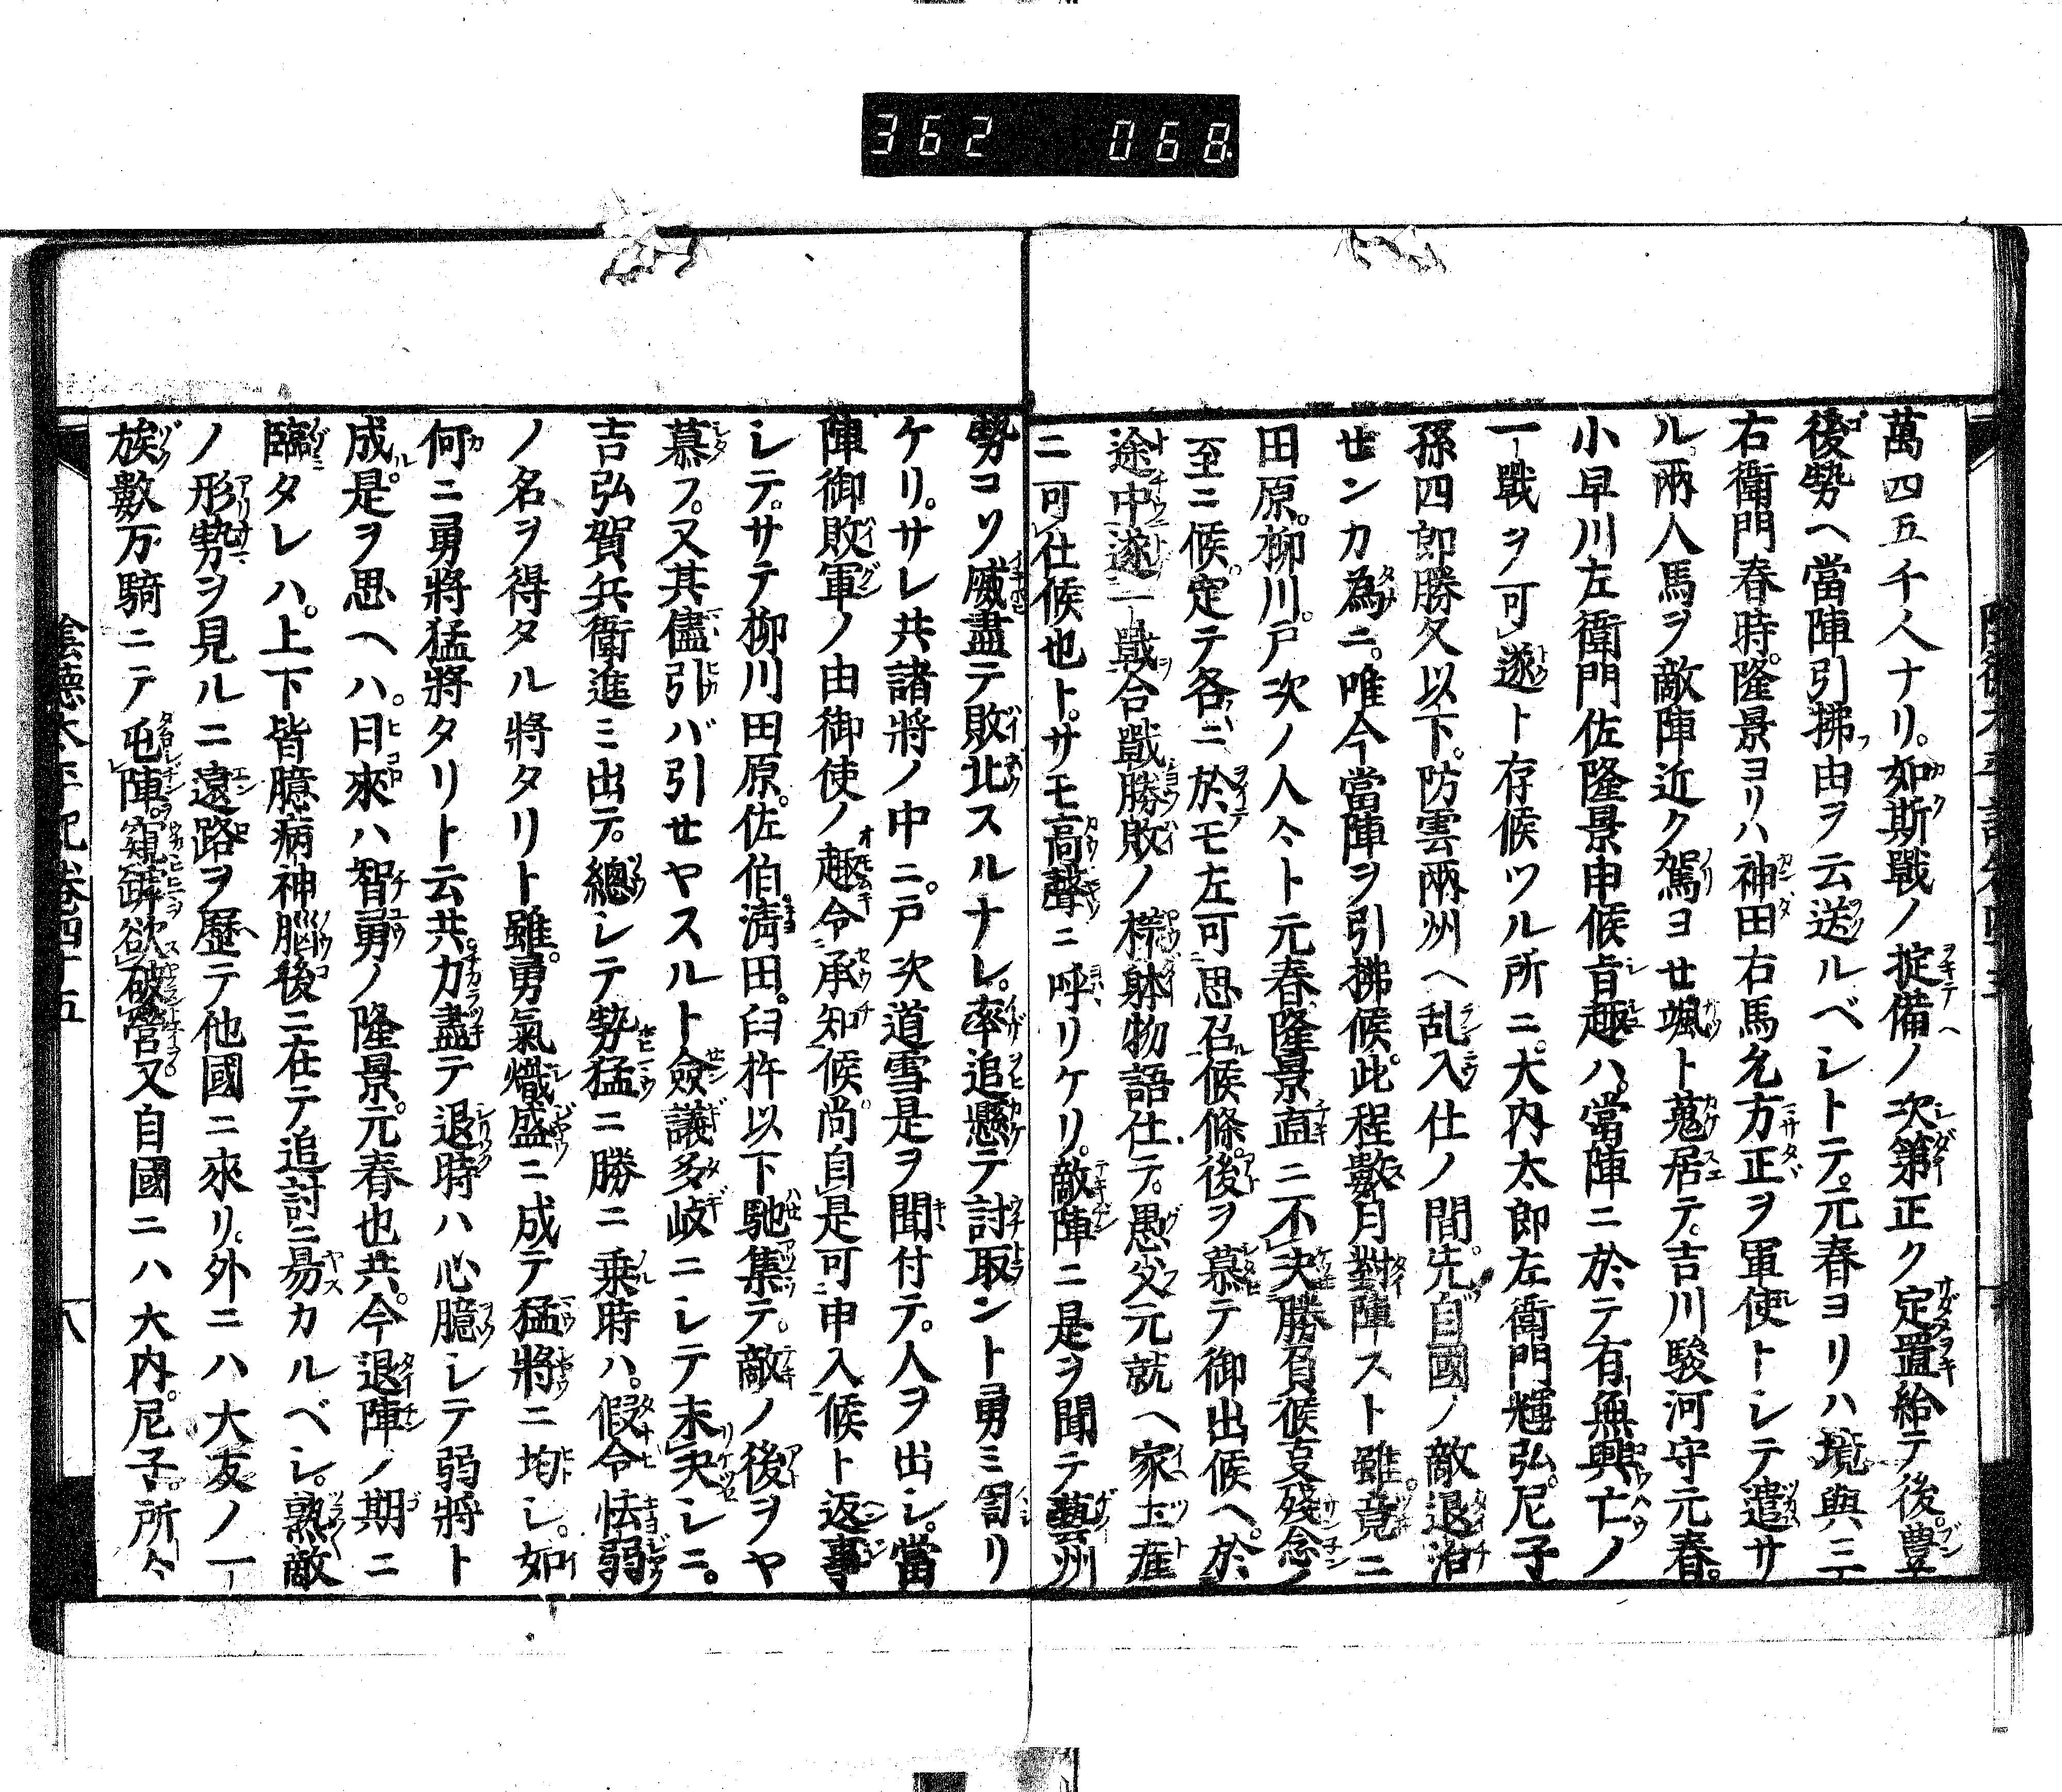 362 068
萬四五千人ナリ。如斯戰ノ掟備ノ次第正ク定置給テ後。豊
後勢ヘ當陣引拂由ヲ云送ルベシトテ。元春ヨリハ境與三
右衛門春時。隆景ヨリハ神田右馬允方正ヲ軍使トシテ遣サ
ル。兩人馬ヲ敵陣近ク駕ヨセ颯ト蒐居テ。吉川駿河守元春。
小早川左衛門佐隆景申候旨趣ハ。當陣ニ於テ有無興亡ノ
一戰ヲ可遂ト存候ツル所ニ。大内太郎左衛門輝弘。尼子
孫四郎勝久以下。防雲兩州ヘ乱入仕ノ間。先自國ノ敵退治
せンカ為ニ。唯今當陣ヲ引拂候。此程數月對陣スト雖。竟ニ
田原。柳川。戸次ノ人々ト元春隆景直ニ不決勝負候叓殘念ノ
至ニ候。定テ各ニ於モ左可思召候條。後ヲ慕テ御出候ヘ。於
途中遂一戰合戰勝敗ノ様躰物語仕テ。愚父元就ヘ家土産
ニ可仕候也ト。サモ高聲ニ呼リケリ。敵陣ニ是ヲ聞テ藝州
勢コソ威盡テ敗北スルナレ。率追懸テ討取ントト勇ミ訇リ
ケリ。サレ共諸將ノ中ニ。戸次道雪是ヲ聞付テ。人ヲ出シ。當
陣御敗軍ノ由御使ノ趣令承知候尚自是可申入候ト返事
シテ。サテ柳川田原。佐伯。淸田。臼杵以下馳集テ。敵ノ後ヲヤ
慕フ。又其儘引バ引せヤスルト僉議多岐ニシテ未決シニ。
吉弘賀兵衛進ミ出テ。總シテ勢猛ニ勝ニ乗時ハ。假令怯弱
ノ名ヲ得タル將タリト雖。勇氣熾盛ニ成テ猛將ニ均シ。如
何ニ勇將猛將タリト云共。力盡テ退時ハ心臆シテ弱將ト
成。是ヲ思ヘハ。日來ハ智勇ノ隆景。元春也共。今退陣ノ期ニ
臨タレハ。上下皆臆病神腦後ニ在テ追討ニ易カルベシ。熟敵
ノ形勢ヲ見ルニ遠路ヲ歷テ他國ニ來リ。外ニハ大友ノ一
族數万騎ニテ屯陣。窺罅欲破營。又自國ニハ大内。尼子。所々
陰德太平記卷四十五 八